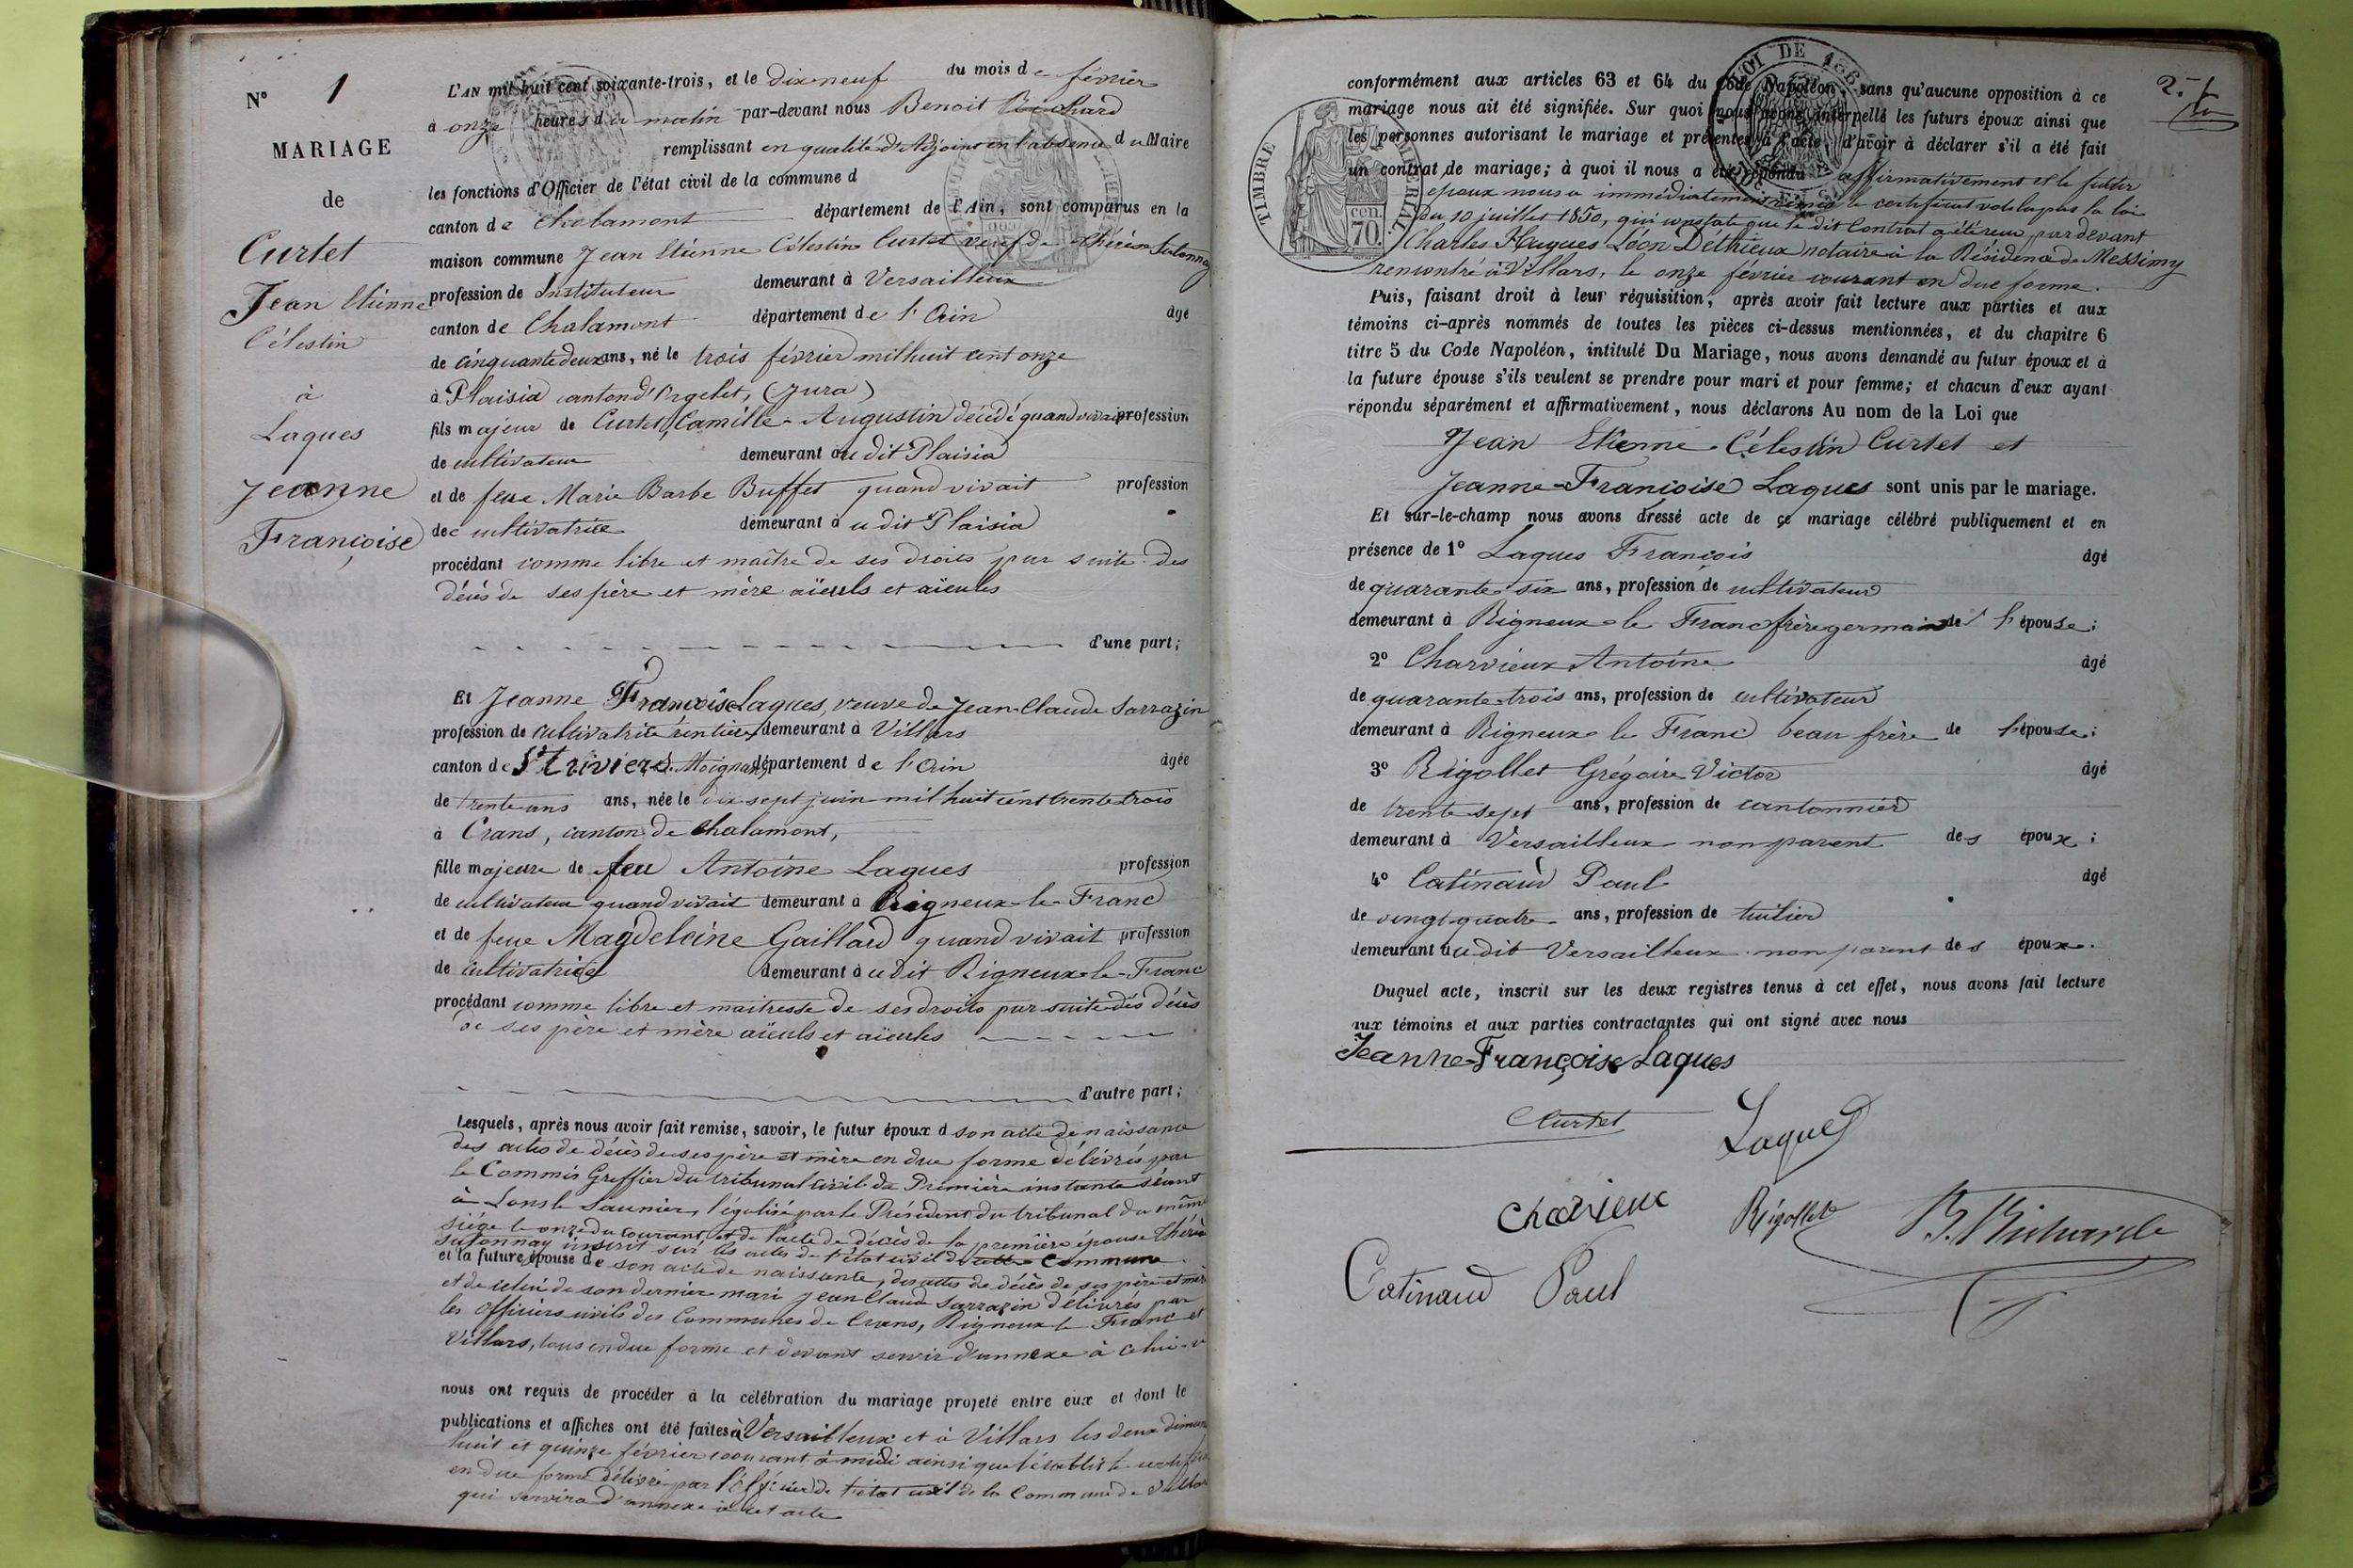 N° 1
MARIAGE
de
Curtet
Jean Etienne
Célestin
à
Laques
Jeanne
Françoise
L'AN mil huit cent soixante-trois, et le dix neuf du mois de février
à onze heures du matin par-devant nous Benoit Richard
remplissant en qualité d'Adjoint en l'absence du Maire
les fonctions d'Officier de l'état civil de la commune d
canton de Chalamont département de l'Ain, sont comparus en la
maison commune Jean Etienne Célestin Curtet veuf de Thérèse Sutonnay
profession de Instituteur demeurant à Versailleux
canton de Chalamont département de l'Ain âgé
de cinquante deux ans, né le trois février mil huit cent onze
à Plaisia canton d'Orgelet, (Jura)
fils majeur de Curtet Camille-Augustin décédé quand vivait profession
de cultivateur demeurant au dit Plaisia
et de feue Marie Barbe Buffet quand vivait profession
de cultivatrice demeurant audit Plaisia
procédant comme libre et maître de ses droits par suite des
décès de ses père et mère aïeuls et aïeules
d'une part;
Et Jeanne Françoise Laques, veuve de Jean-Claude Sarrazin
profession de cultivatrice rentière demeurant à Villars
canton de St Trivier s. Moignans département de l'Ain âgée
de trente ans ans, née le dix sept juin mil huit cent trente trois
à Crans, canton de Chalamont,
fille majeure de feu Antoine Laques profession
de cultivateur quand vivait demeurant à Rigneux-le-Franc
et de feue Magdeleine Gaillard quand vivait profession
de cultivatrice demeurant audit Rigneux-le-Franc
procédant comme libre et maitresse de ses droits par suite des décès
de ses père et mère aïeuls et aïeules
d'autre part;
Lesquels, après nous avoir fait remise, savoir, le futur époux d son acte de naissance
des actes de décès de ses père et mère en due forme délivrés par
le Commis Greffier du tribunal civil de Première instance séant
à Lons le Saunier, légalisé par le Président du tribunal du même
siége le onze du courant, et de l'acte de décès de la première épouse Thérèse
Sutonnay inscrit sur les actes de l'état civil de cette Commune
et la future épouse de son acte de naissance, des actes de décès de ses père et mère
et de celui de son dernier mari Jean Claude Sarrazin délivrés par
les officiers civils des Communes de Crans, Rigneux le Franc et
Villars, tous en due forme et devant servir d'annexe à celui-ci
nous ont requis de procéder à la célébration du mariage projeté entre eux et dont le
publications et affiches ont été faites à Versailleux et à Villars les deux dimanc
huit et quinze février courant à midi ainsi que l'établit le certificat
en due forme délivré par l'Officier de l'état civil de la Commune de Villars
qui servira d'annexe à cet acte
2. f
conformément aux articles 63 et 64 du Code Napoléon, sans qu'aucune opposition à ce
mariage nous ait été signifiée. Sur quoi nous avons interpellé les futurs époux ainsi que
les personnes autorisant le mariage et présentes à l'acte, d'avoir à déclarer s'il a été fait
un contrat de mariage; à quoi il nous a été répondu affirmativement et le futur
époux nous a immédiatement remis le certificat voulu par la loi
du 10 juillet 1850, qui constate que le dit Contrat a été reçu par devant
Charles Hugues Léon Dethieux notaire à la Résidence de Messimy
rencontré à Villars, le onze février courant en due forme.
TIMBRE IMPERIAL
70 cen.
Puis, faisant droit à leur réquisition, après avoir fait lecture aux parties et aux
témoins ci-après nommés de toutes les pièces ci-dessus mentionnées, et du chapitre 6
titre 5 du Code Napoléon, intitulé Du Mariage, nous avons demandé au futur époux et à
la future épouse s'ils veulent se prendre pour mari et pour femme; et chacun d'eux ayant
répondu séparément et affirmativement, nous déclarons Au nom de la Loi que
Jean Etienne Célestin Curtet et
Jeanne-Françoise Laques sont unis par le mariage.
Et sur-le-champ nous avons dressé acte de ce mariage célébré publiquement et en
présence de 1° Laques François âgé
de quarante six ans, profession de cultivateur
demeurant à Rigneux-le Franc frère germain de l'épouse;
2° Charvieux Antoine âgé
de quarante trois ans, profession de cultivateur
demeurant à Rigneux le Franc beau frère de l'épouse;
3° Rigollet Grégoire Victor âgé
de trente sept ans, profession de cantonnier
demeurant à Versailleux non parent des époux;
4° Catinaud Paul âgé
de vingt quatre ans, profession de tuilier
demeurant audit Versailleux non parent des époux.
Duquel acte, inscrit sur les deux registres tenus à cet effet, nous avons fait lecture
aux témoins et aux parties contractantes qui ont signé avec nous
Jeanne-Françoise Laques
Curtet Laques
Charvieux Rigollet B. Richard
Catinaud Paul